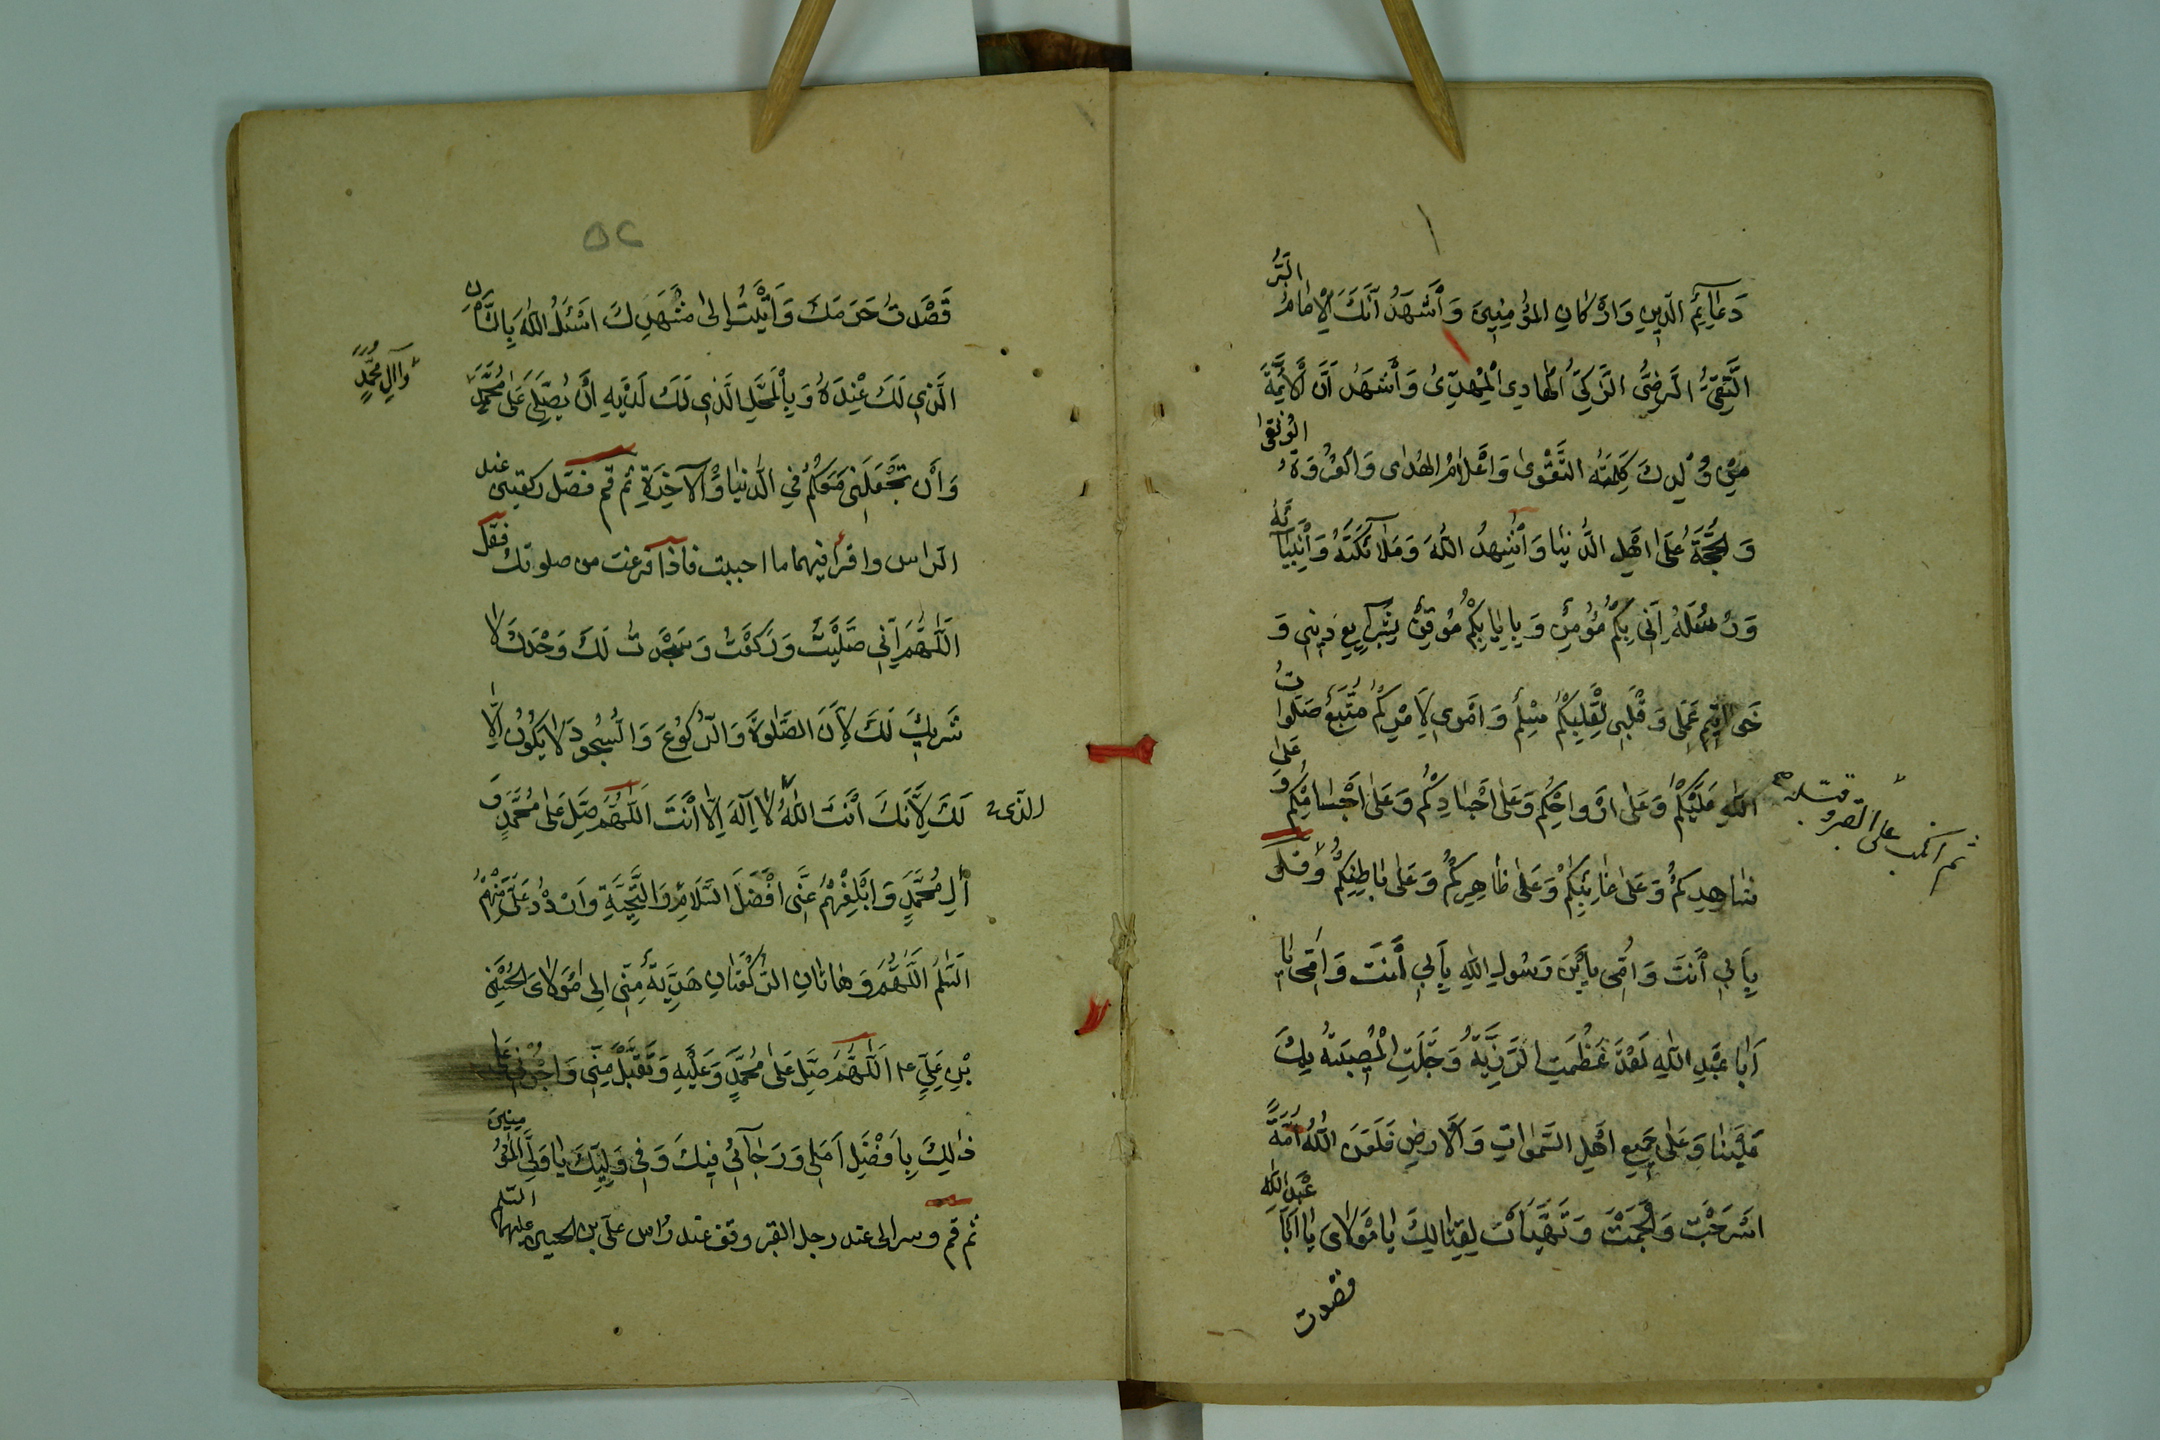 دَعَآئِمِ الدّينِ وَاَرْكانِ المُؤْمِنِينَ وَاَشْهَدُ اَنَّكَ الْاِمامُ البَرُّ
التَّقِىُّ الرَّضِىُّ الزَّكِىُّ الْهادِى الْمَهْدِىُّ وَاَشْهَدُ اَنَّ الْاَئِمَّةَ
مِنْ وُلْدِكَ كَلِمَةُ التَّقْوىٰ وَاَعْلامُ الهُدىٰ وَالعُرْوَةُ الوُثْقىٰ
وَالحُجَّةُ عَلىٰ اَهْلِ الدُّنْيٰا وَاُشْهِدُ اللّٰهَ وَمَلآئِكَتَهُ وَاَنْبِيٰآئَهُ
وَرُسُلَهُ اِنّى بِكُمْ مُؤْمِنٌ وَبِاِيٰابِكُمْ مُوقِنٌ بِشَرٰايِعِ دِينى وَ
خَوٰاتيمِ عَمَلى وَقَلْبى لِقَلْبِكُمْ سِلْمٌ وَاَمْرى لِاَمْرِكُمْ مُتَّبِعٌ صَلَوٰاتُ
اللّٰهِ عَلَيْكُمْ وَعَلىٰ اَرْواحِكُمْ وَعَلىٰ اَجْسٰادِكُمْ وَعَلىٰ اَجْسٰامِكُمْ وَعَلىٰ
ثم انكب على القبر وقبّله
شاهِدِكُمْ وَعَلىٰ غٰائِبِكُمْ وَعَلىٰ ظٰاهِرِكُمْ وَعَلىٰ بٰاطِنِكُمْ وقل
بِاَبى اَنْتَ وَاُمّى يَابْنَ رَسُولِ اللّٰهِ بِاَبى اَنْتَ وَاُمّى يٰا
اَبٰا عَبْدِ اللّٰهِ لَقَدْ عَظُمَتِ الرَّزِيَّةُ وَجَلَّتِ الْمُصِيبَةُ بِكَ
عَلَيْنٰا وَعَلىٰ جَمِيعِ اَهْلِ السَّمٰواتِ وَالْاَرضِ فَلَعَنَ اللّٰهُ اُمَّةً
اَسْرَجَتْ وَاَلْجَمَتْ وَتَهَيَّاَتْ لِقِتٰالِكَ يٰا مَوْلاىَ يٰا اَبٰا عَبْدِاللّٰهِ
قصدت
٥٢
قَصَدْتُ حَرَمَكَ وَاَتَيْتُ اِلىٰ مَشْهَدِكَ اَسْئَلُ اللّٰهَ بِالشَّاْنِ
الَّذى لَكَ عِنْدَهُ وَبِالْمَحَلِّ الَّذى لَكَ لَدَيْهِ اَنْ يُصَلِّىَ عَلىٰ مُحَمَّدٍ
وَآلِ مُحَمَّدٍ
وَاَنْ تَجْعَلَنى مَعَكُمْ فِى الدُّنيٰا وَالْآخِرَةِ ثم قم فصلّ ركعتين عند
الراس واقرأ فيهما ما احببت فاذا فرغت من صلوتك فقل
اَللّٰهُمَّ اِنّى صَلَّيْتُ وَرَكَعْتُ وَسَجَدْتُ لَكَ وَحْدَكَ لاٰ
شَرِيكَ لَكَ لِاَنَّ الصَّلوٰةَ وَالرُّكُوعَ وَالسُّجُودَ لاٰ يَكُونُ اِلّٰا
لَكَ لِاَنَّكَ اَنْتَ اللّٰهُ الَّذى لاٰ اِلٰهَ اِلّٰا اَنْتَ اَللّٰهُمَّ صَلِّ عَلىٰ مُحَمَّدٍ وَ
آلِ مُحَمَّدٍ وَاَبْلِغْهُمْ عَنّى اَفْضَلَ السَّلامِ وَالتَّحِيَّةِ وَارْدُدْ عَلَىَّ مِنْهُمُ
السَّلٰمَ اَللّٰهُمَّ وَهٰاتٰانِ الرَّكْعَتٰانِ هَدِيَّةٌ مِنّى اِلىٰ مَوْلاىَ الحُسَيْنِ
بْنِ عَلِىٍّ ع اَللّٰهُمَّ صَلِّ عَلىٰ مُحَمَّدٍ وَعَلَيْهِ وَتَقَبَّلْ مِنّى وَاْجُرْنى عَلىٰ
ذٰلِكَ بِاَفْضَلِ اَمَلى وَرَجٰآئى فِيكَ وَفى وَلِيِّكَ يٰا وَلِىَّ الْمُؤْمِنِينَ
ثم قم وسر الى عند رجل القبر وقف عند رأس على بن الحسين عليهما السّلم